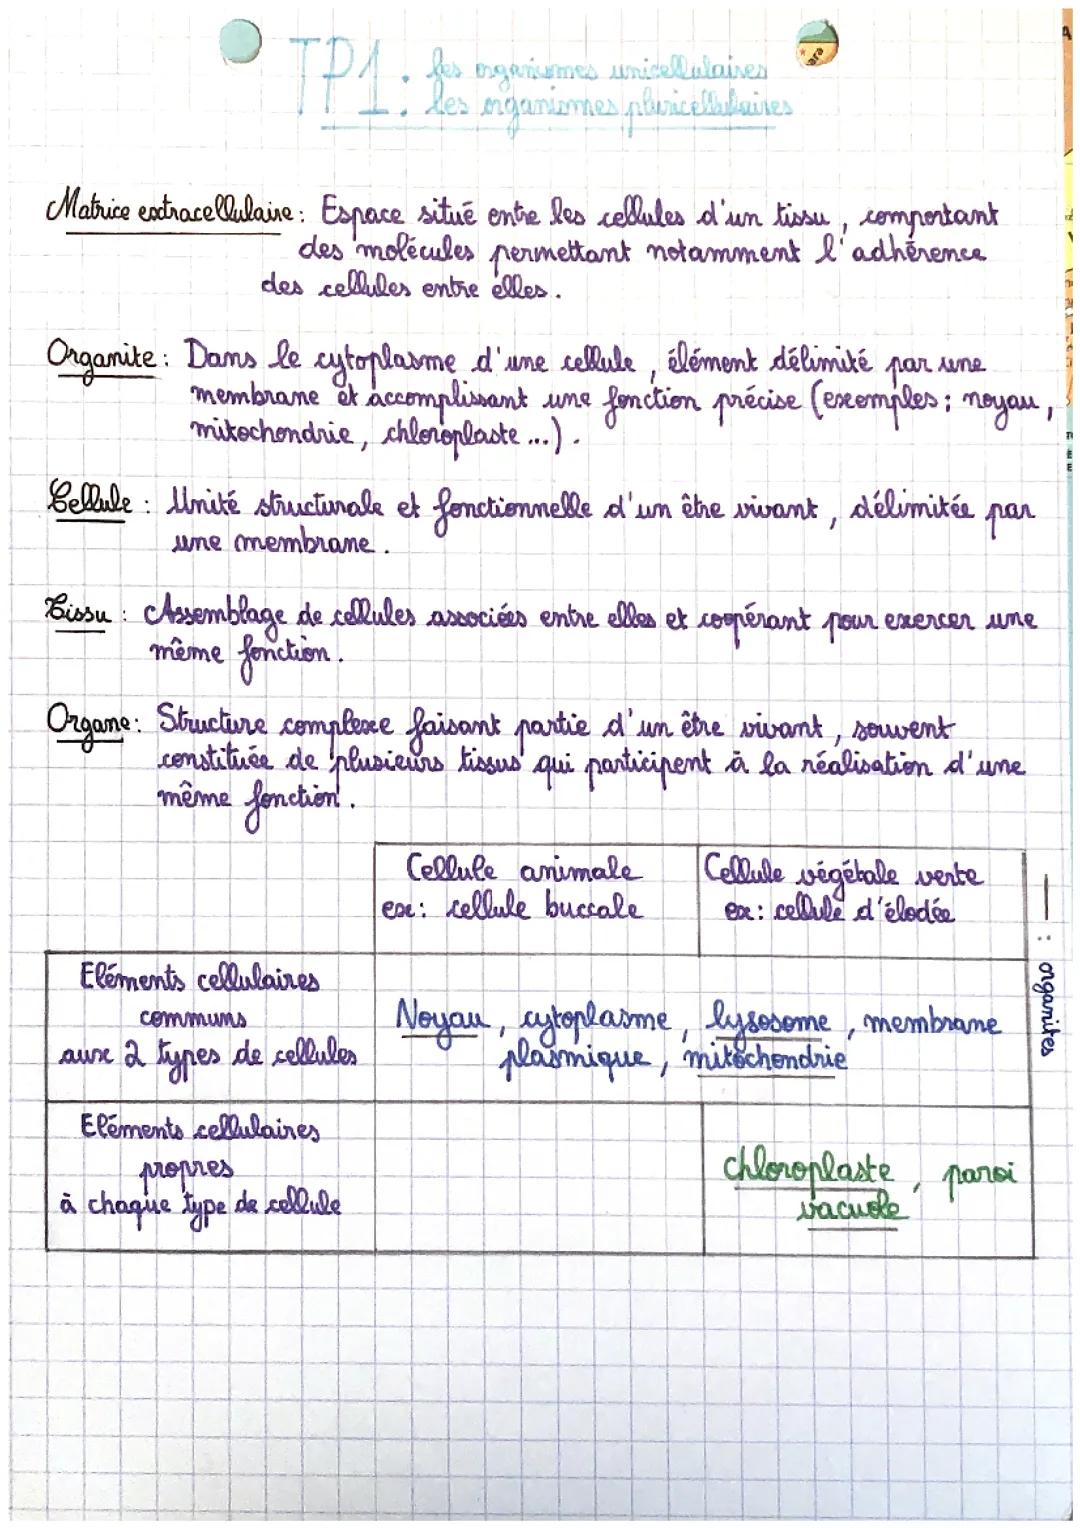 TP1: Les organismes unicellulaires
les organismes pluricellulaires
Matrice extracellulaire : Espace situé entre les cellules d'un tissu, comportant
des molécules permettant notamment l'adhérence
des cellules entre elles.
Organite : Dans le cytoplasme d'une cellule, élément délimité par une
membrane et accomplissant une fonction précise (exemples ; noyau,
mitochondrie, chloroplaste ...).
Cellule : Unité structurale et fonctionnelle d'un être vivant, délimitée par
une membrane.
Tissu : Assemblage de cellules associées entre elles et coopérant pour exercer une
même fonction.
Organe : Structure complexe faisant partie d'un être vivant, souvent
constituée de plusieurs tissus qui participent à la réalisation d'une
même fonction.
Cellule animale
ex : cellule buccale
Cellule végétale verte
ex : cellule d'élodée
— : organites
Eléments cellulaires
communs
aux 2 types de cellules
Noyau, cytoplasme, lysosome, membrane
plasmique, mitochondrie
Eléments cellulaires
propres
à chaque type de cellule
chloroplaste, paroi
vacuole